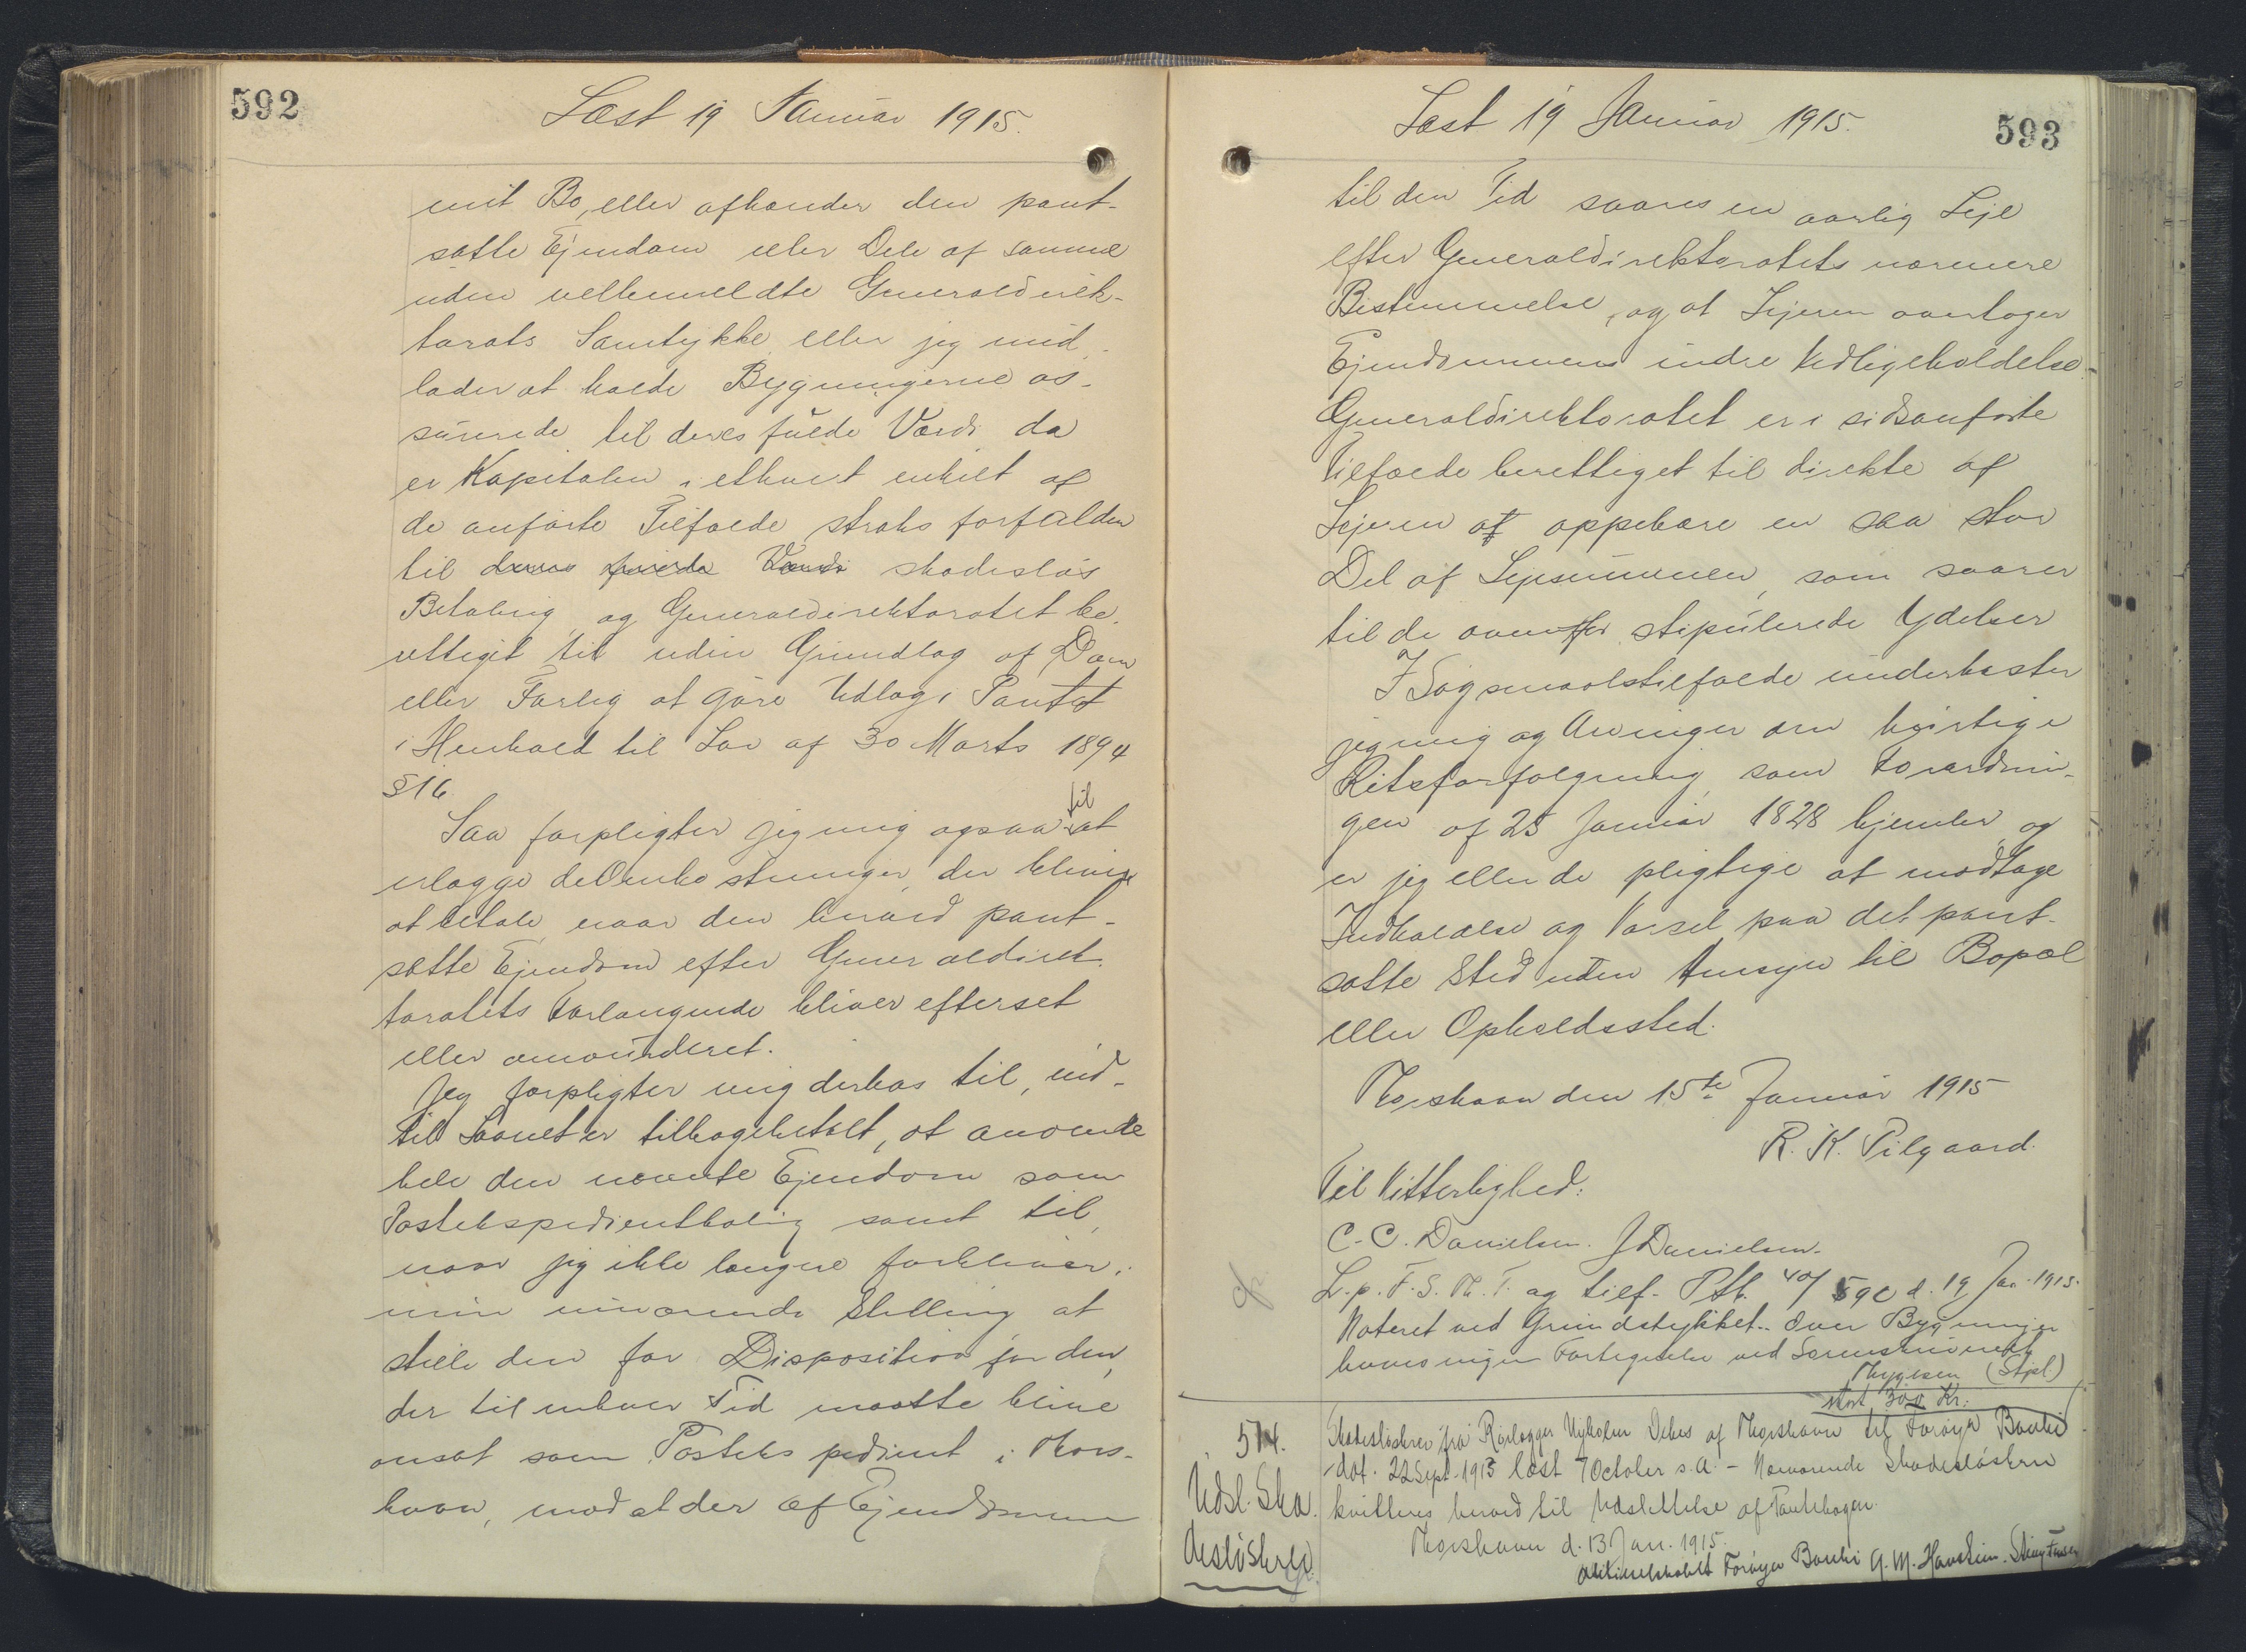 592
Læst 19 Januar 1915.
mit Bo, eller afhænder den pant-
satte Ejendom eller Dele af samme
uden velbemeldte Generaldirek-
torats Samtykke eller jeg und-
lader at holde Bygningerne as-
surerede til deres fulde Værdi da
er Kapitalen i ethvert enkelt af
de anførte Tilfælde straks forfalden
til deres fulde Værdi skadesløs
Betaling og Generaldirektoratet be-
rettiget til uden Grundlag af Dom
eller Forlig at gøre Udlæg i Pantet
i Henhold til Lov af 30 Marts 1894
§16.
Saa forpligter jeg mig ogsaa til at
erlægge de Omkostninger, der bliver
at betale, naar den herved pant-
satte Ejendom efter Generaldirek-
toratets Forlangende bliver efterset
eller omvurderet.
Jeg forpligter mig derhos til, ind-
til Laanet er tilbagebetalt, at anvende
hele den nævnte Ejendom som
Postekspedientbolig samt til,
naar jeg ikke længere forbliver i
min nuværende Stilling at
stille den for Disposition for den,
der til enhver Tid maatte blive
ansat som Postekspedient i Thors-
havn, mod at der af Ejendommen
593
Læst 19 Januar 1915.
til den Tid svares en aarlig Leje
efter Generaldirektoratets nærmere
Bestemmelse, og at Lejeren overtager
Ejendommens indre Vedligeholdelse.-
Generaldirektoratet er i sidsanførte
Tilfælde berettiget til direkte af
Lejeren at oppebære en saa stor
Del af Lejesummen, som svarer
til de ovenfor stipulerede Ydelser
I Søgsmaalstilfælde underkaster
jeg mig og Arvinger den hurtige
Retsforfølgning, som Forordnin-
gen af 25 Januar 1828 hjemler og
er jeg eller de pligtige at modtage
Indkaldelse og Varsel paa det pant-
satte Sted uden Hensyn til Bopæl
eller Opholdssted.
Thorshavn den 15de Januar 1915
R. K. Pilgaard.
Til Vitterlighed:
C. C. Danielsen. J Danielsen.
L. p. F. S. Th. T. og tilf. Ptb. 40/590 d. 19 Jan. 1915.
Noteret ved Grundstykket. Over Bygninger
haves ingen Fortegnelse ved Sorenskriveriet
(Stpl.)
stort 300 Kr.
514.
Udsl. Ska.
desløsbrev
Skadesløsbrev fra Rørlægger of Thorshavn til Forøya Banki
dat. 22 Sept. 1913 læst 7 October s. A. - Nærværende Skadesløsbrev
kvitteres herved til Udslettelse af Pantebogen.
Thorshavn d. 13 Jan. 1915.
Aktieselskabet Forøya Banki